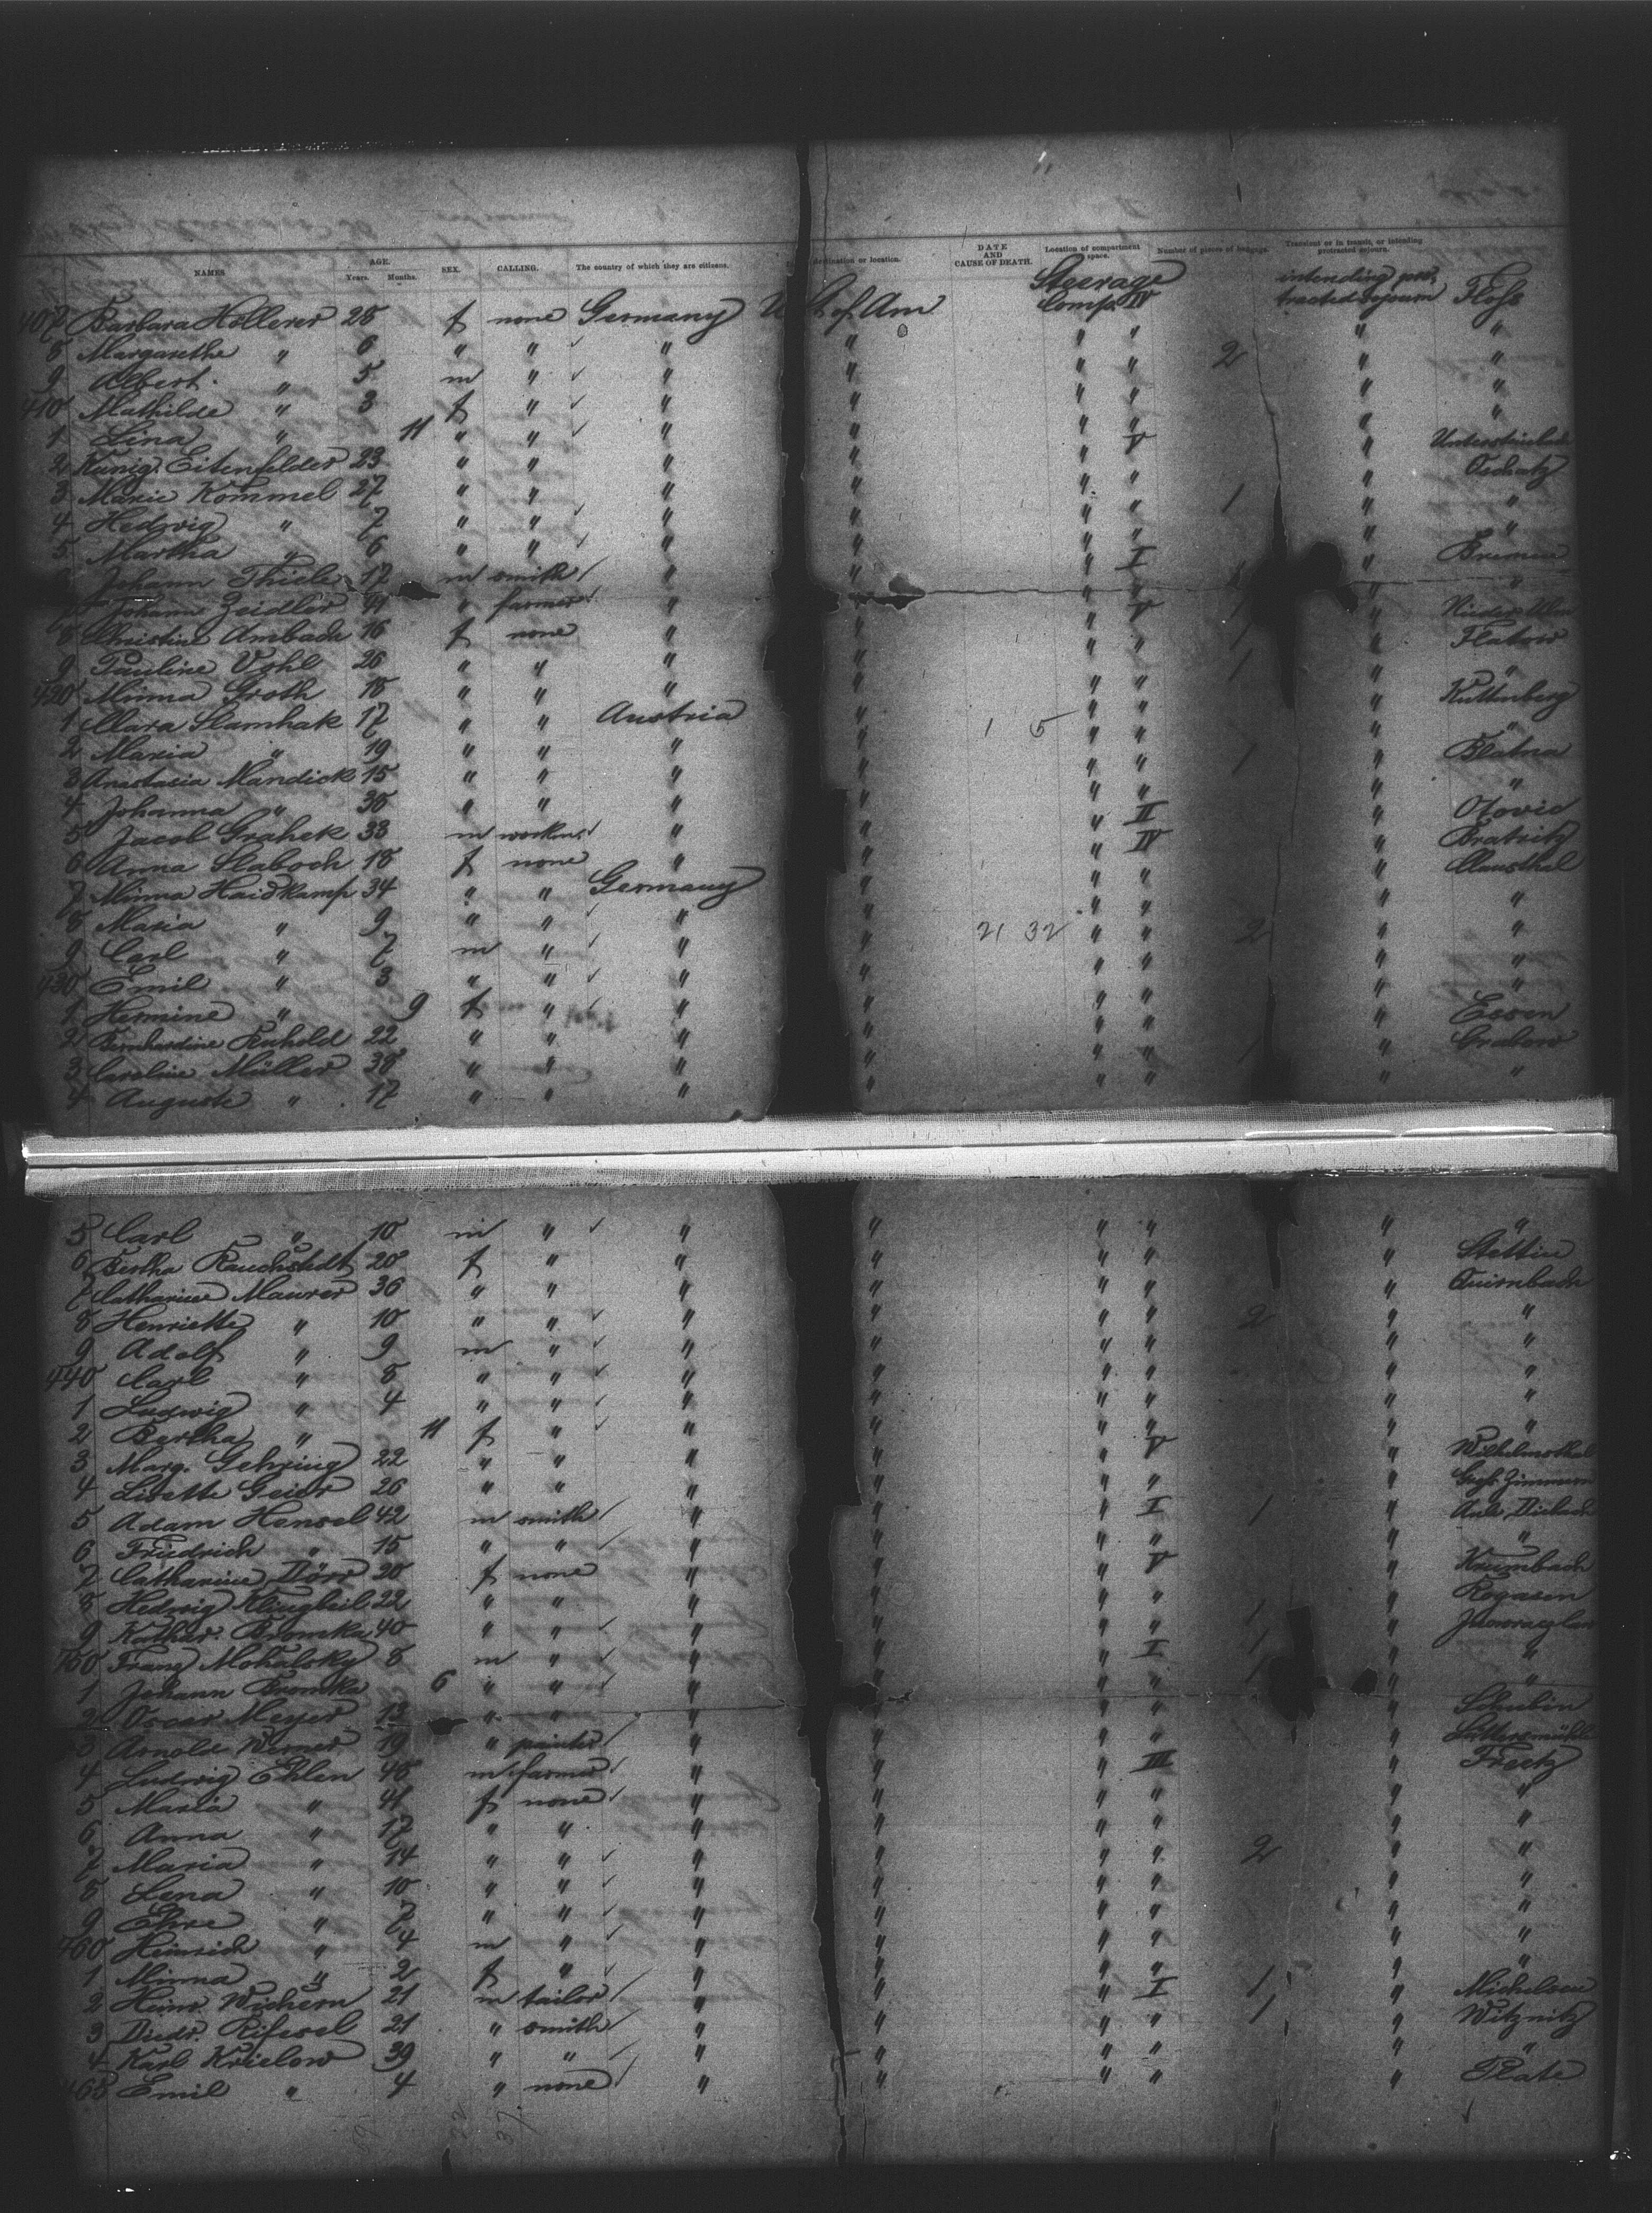 NAMES AGE. Years. Months. SEX. CALLING. The country of which they are citizens. destination or location. DATE AND CAUSE OF DEATH. Location of compartment space. Number of pieces of baggage. Transient or in transit, or intending protracted sojourn.
407 Barbara Höllerer 28 f none Germany U St. of Am Steerage Comp. IV intending protracted sojourn Floss
8 Margarethe " 6 " " " " " " " "
9 Albert " 5 m " " " " " 2 " "
410 Mathilde " 3 f " " " " " " "
1 Lina " 11 " " " " " " " "
2 Kunig. Eitenfelder 23 " " " " " V "
3 Marie Kommel 27 " " " " " " " Oschatz
4 Hedwig " 7 " " " " " " 1 " "
5 Martha " 6 " " " " " " " "
6 Johann Thiele 17 m smith " " " I " Bremen
7 Johann Zeidler 41 " farmer " " " " " "
8 Christine Ambach 16 f none " " " V 1 "
9 Pauline Vohl 26 " " " " " " 1 " Flatow
420 Minna Groth 18 " " " " " " 1 " "
1 Clara Slamhak 17 " " Austria " " " " Kuttenberg
2 Maria " 19 " " " " 1 5 " " " "
3 Anastasia Mandick 15 " " " " " " 1 " Blatna
4 Johanna " 38 " " " " " " " "
5 Jacob Grahek 33 m workm. " " " II " Otovic
6 Anna Slaboch 18 f none " " " IV " Bratritz
7 Minna Haidkamp 34 " " Germany " " " " Clausthal
8 Maria " 9 " " " " " " " "
9 Carl " 7 m " " " 21 32 " " 2 " "
430 Emil " 3 " " " " " " " "
1 Hermine " 9 f " " " " " " "
2 Bernhardine Kuhold 22 " " " " " " " Essen
3 Caroline Müller 38 " " " " " " 1 " Grabow
4 Auguste " 17 " " " " " " " "
5 Carl " 10 m " " " " " " "
6 Bertha Rauchstedt 20 f " " " " " " Stettin
7 Catharine Maurer 36 " " " " " " " Quirnbach
8 Henriette " 10 " " " " " " 2 " "
9 Adolf " 9 m " " " " " " "
440 Carl " 8 " " " " " " " "
1 Ludwig " 4 " " " " " " " "
2 Bertha " 11 f " " " " " " "
3 Marg. Gehring 22 " " " " " V " Wilhelmsthal
4 Lisette Geier 26 " " " " " " " Gross Zimmern
5 Adam Hensel 42 m smith " " " I 1 "
6 Friedrich " 15 " " " " " " " "
7 Catharine Dörr 20 f none " " " V " Krumbach
8 Hedwig Klingbeil 22 " " " " " " " Rogasen
9 Kathar. Bromka 40 " " " " " " 1 "
450 Franz Mohalsky 8 m " " " " I 1 " "
1 Johann Bromka 6 " " " " " " 1 " "
2 Oscar Meyer 13 " " " " " " " Schubin
3 Arnold Werner 19 " painter " " " " "
4 Ludwig Ehlen 48 m farmer " " " III " Freetz
5 Maria " 41 f none " " " " " "
6 Anna " 17 " " " " " " " "
7 Maria " 14 " " " " " " 2 " "
8 Lena " 10 " " " " " " " "
9 Ehre " 7 " " " " " " " "
460 Heinrich " 4 m " " " " " " "
1 Minna " 2 f " " " " " " "
2 Heinr. Wichern 21 m tailor " " " I 1 "
3 Diedr. Rifesel 21 " smith " " " " 1 " Witznitz
4 Karl Krielow 39 " " " " " " " "
465 Emil " 4 " none " " " " " Plate